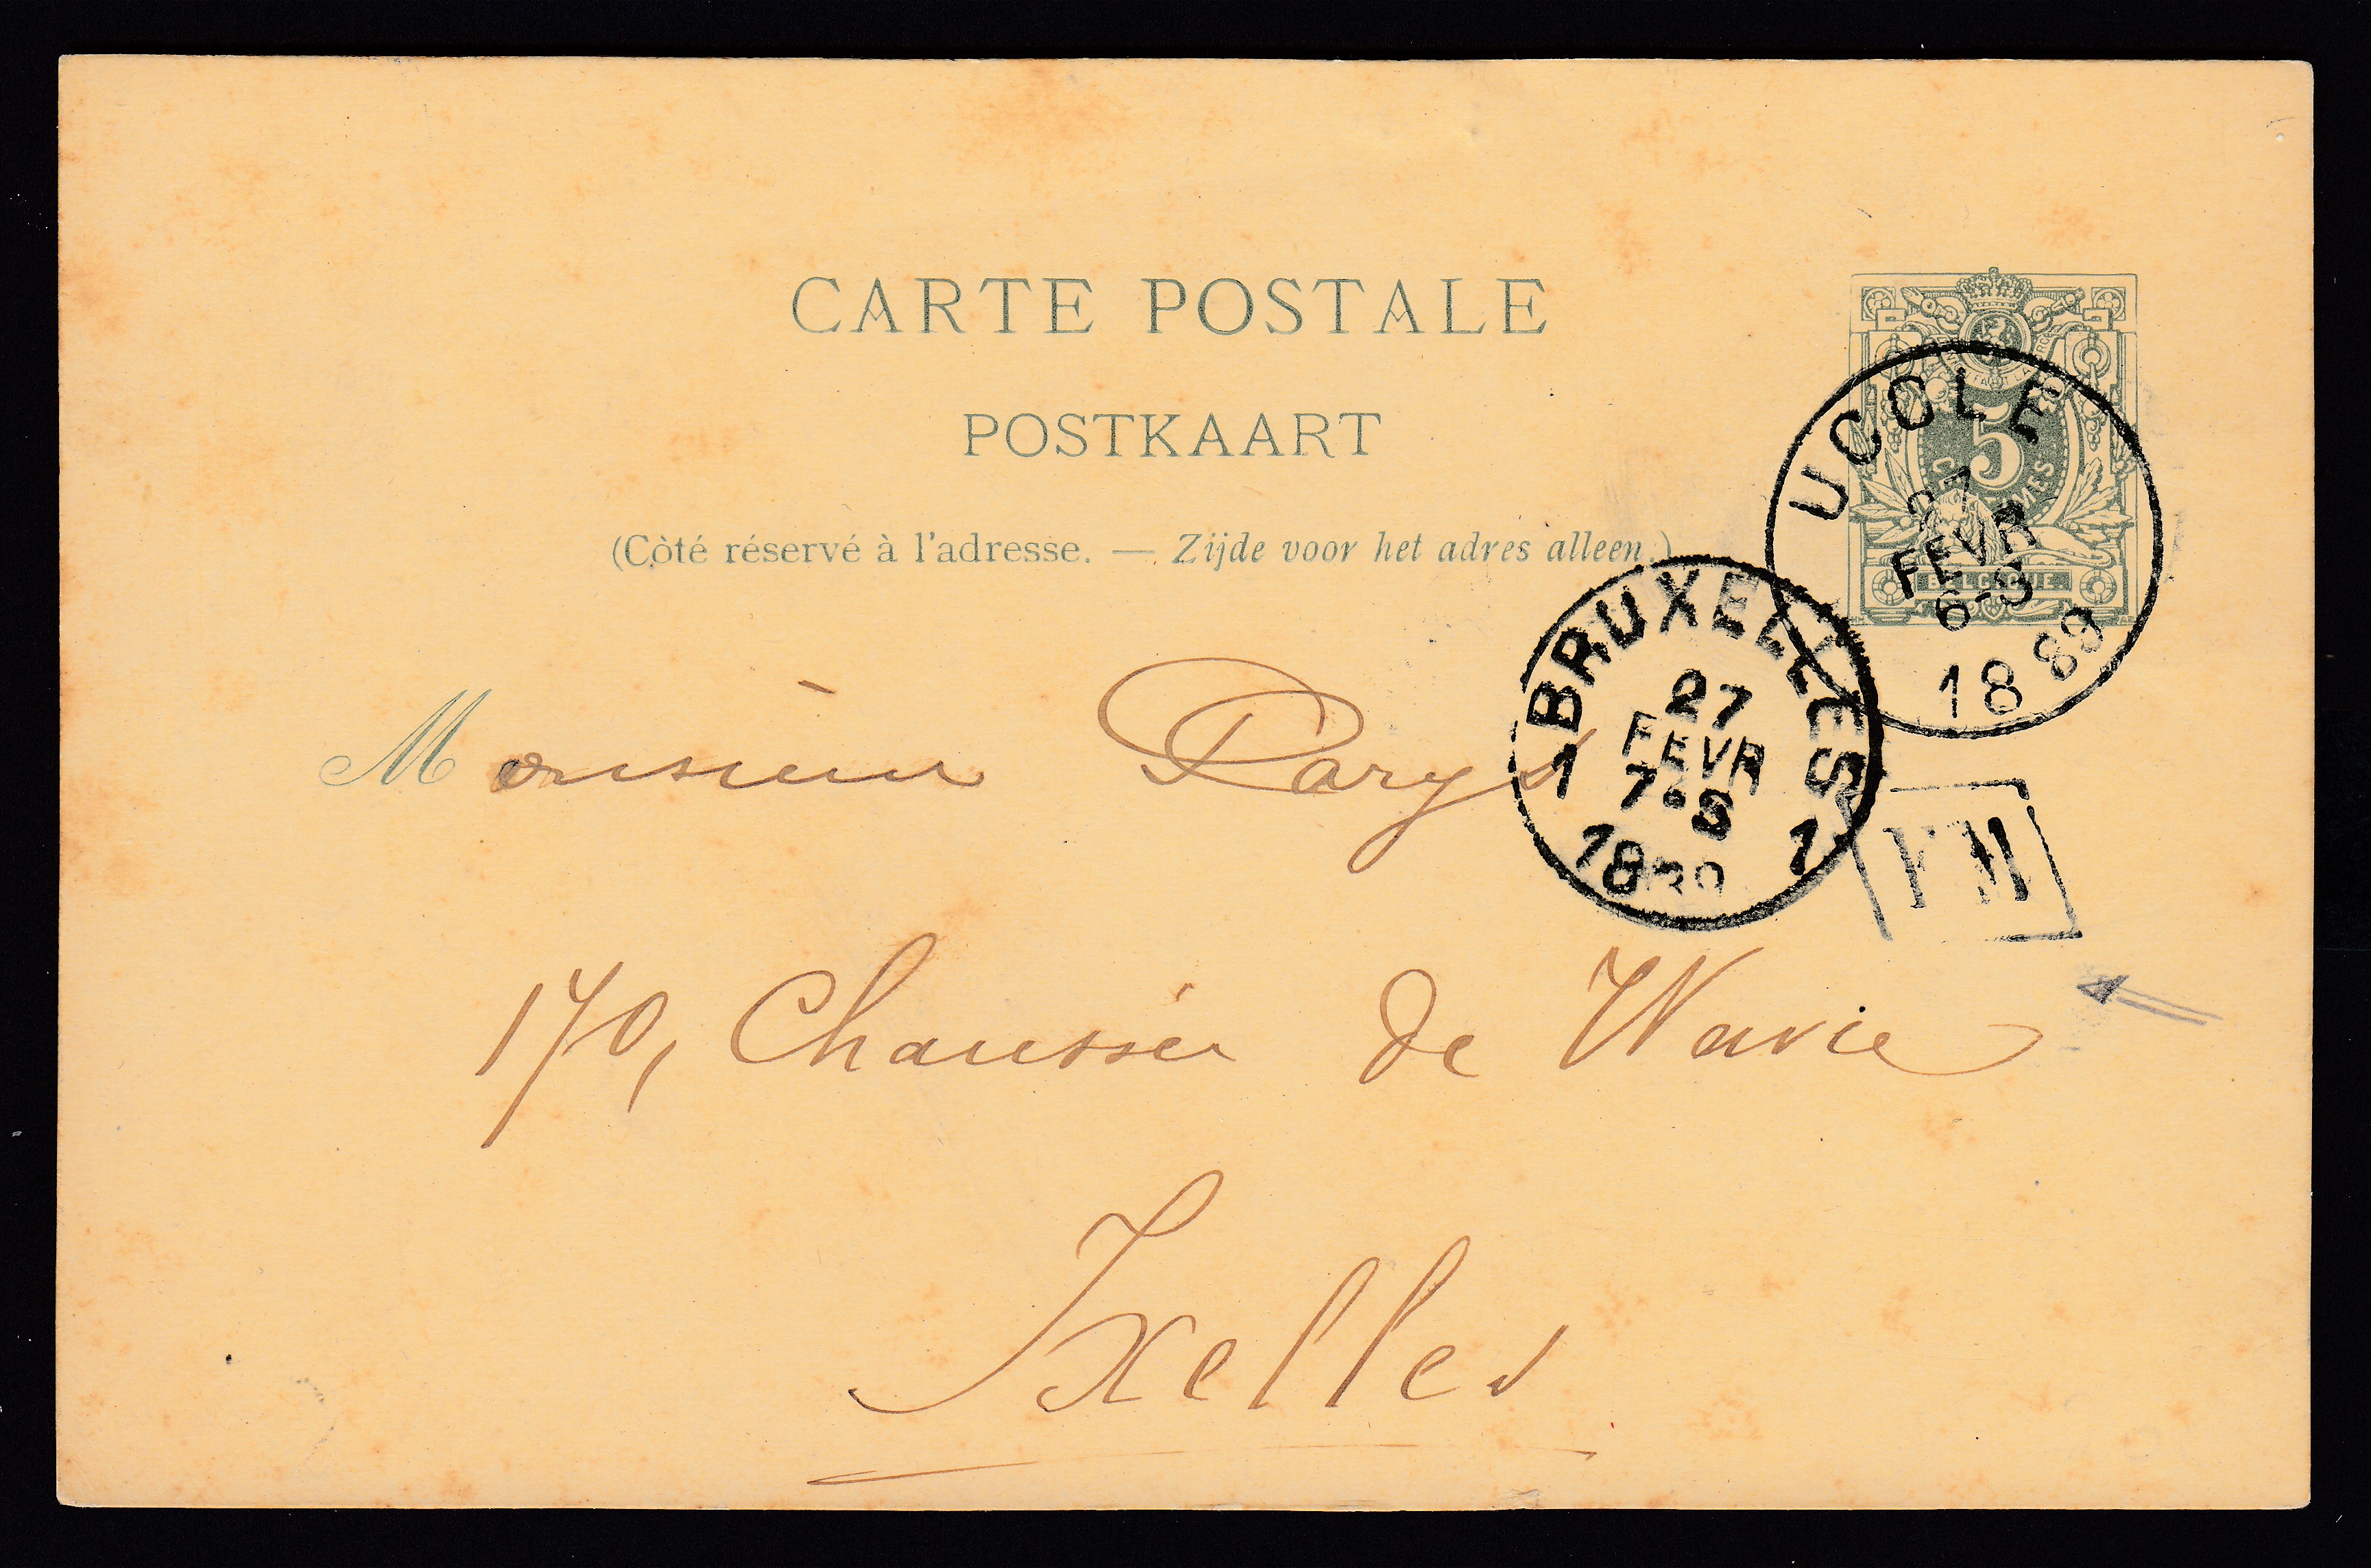 CARTE POSTALE
POSTKAART
(Côté réservé à l'adresse. — Zijde voor het adres alleen.)
5
CENTIMES
BELGIQUE
UCCLE
27
FEVR
6-S
1889
BRUXELLES
27
FEVR
7•S
1 1
1889
Monsieur Parys
170, Chaussée de Wavre
Ixelles